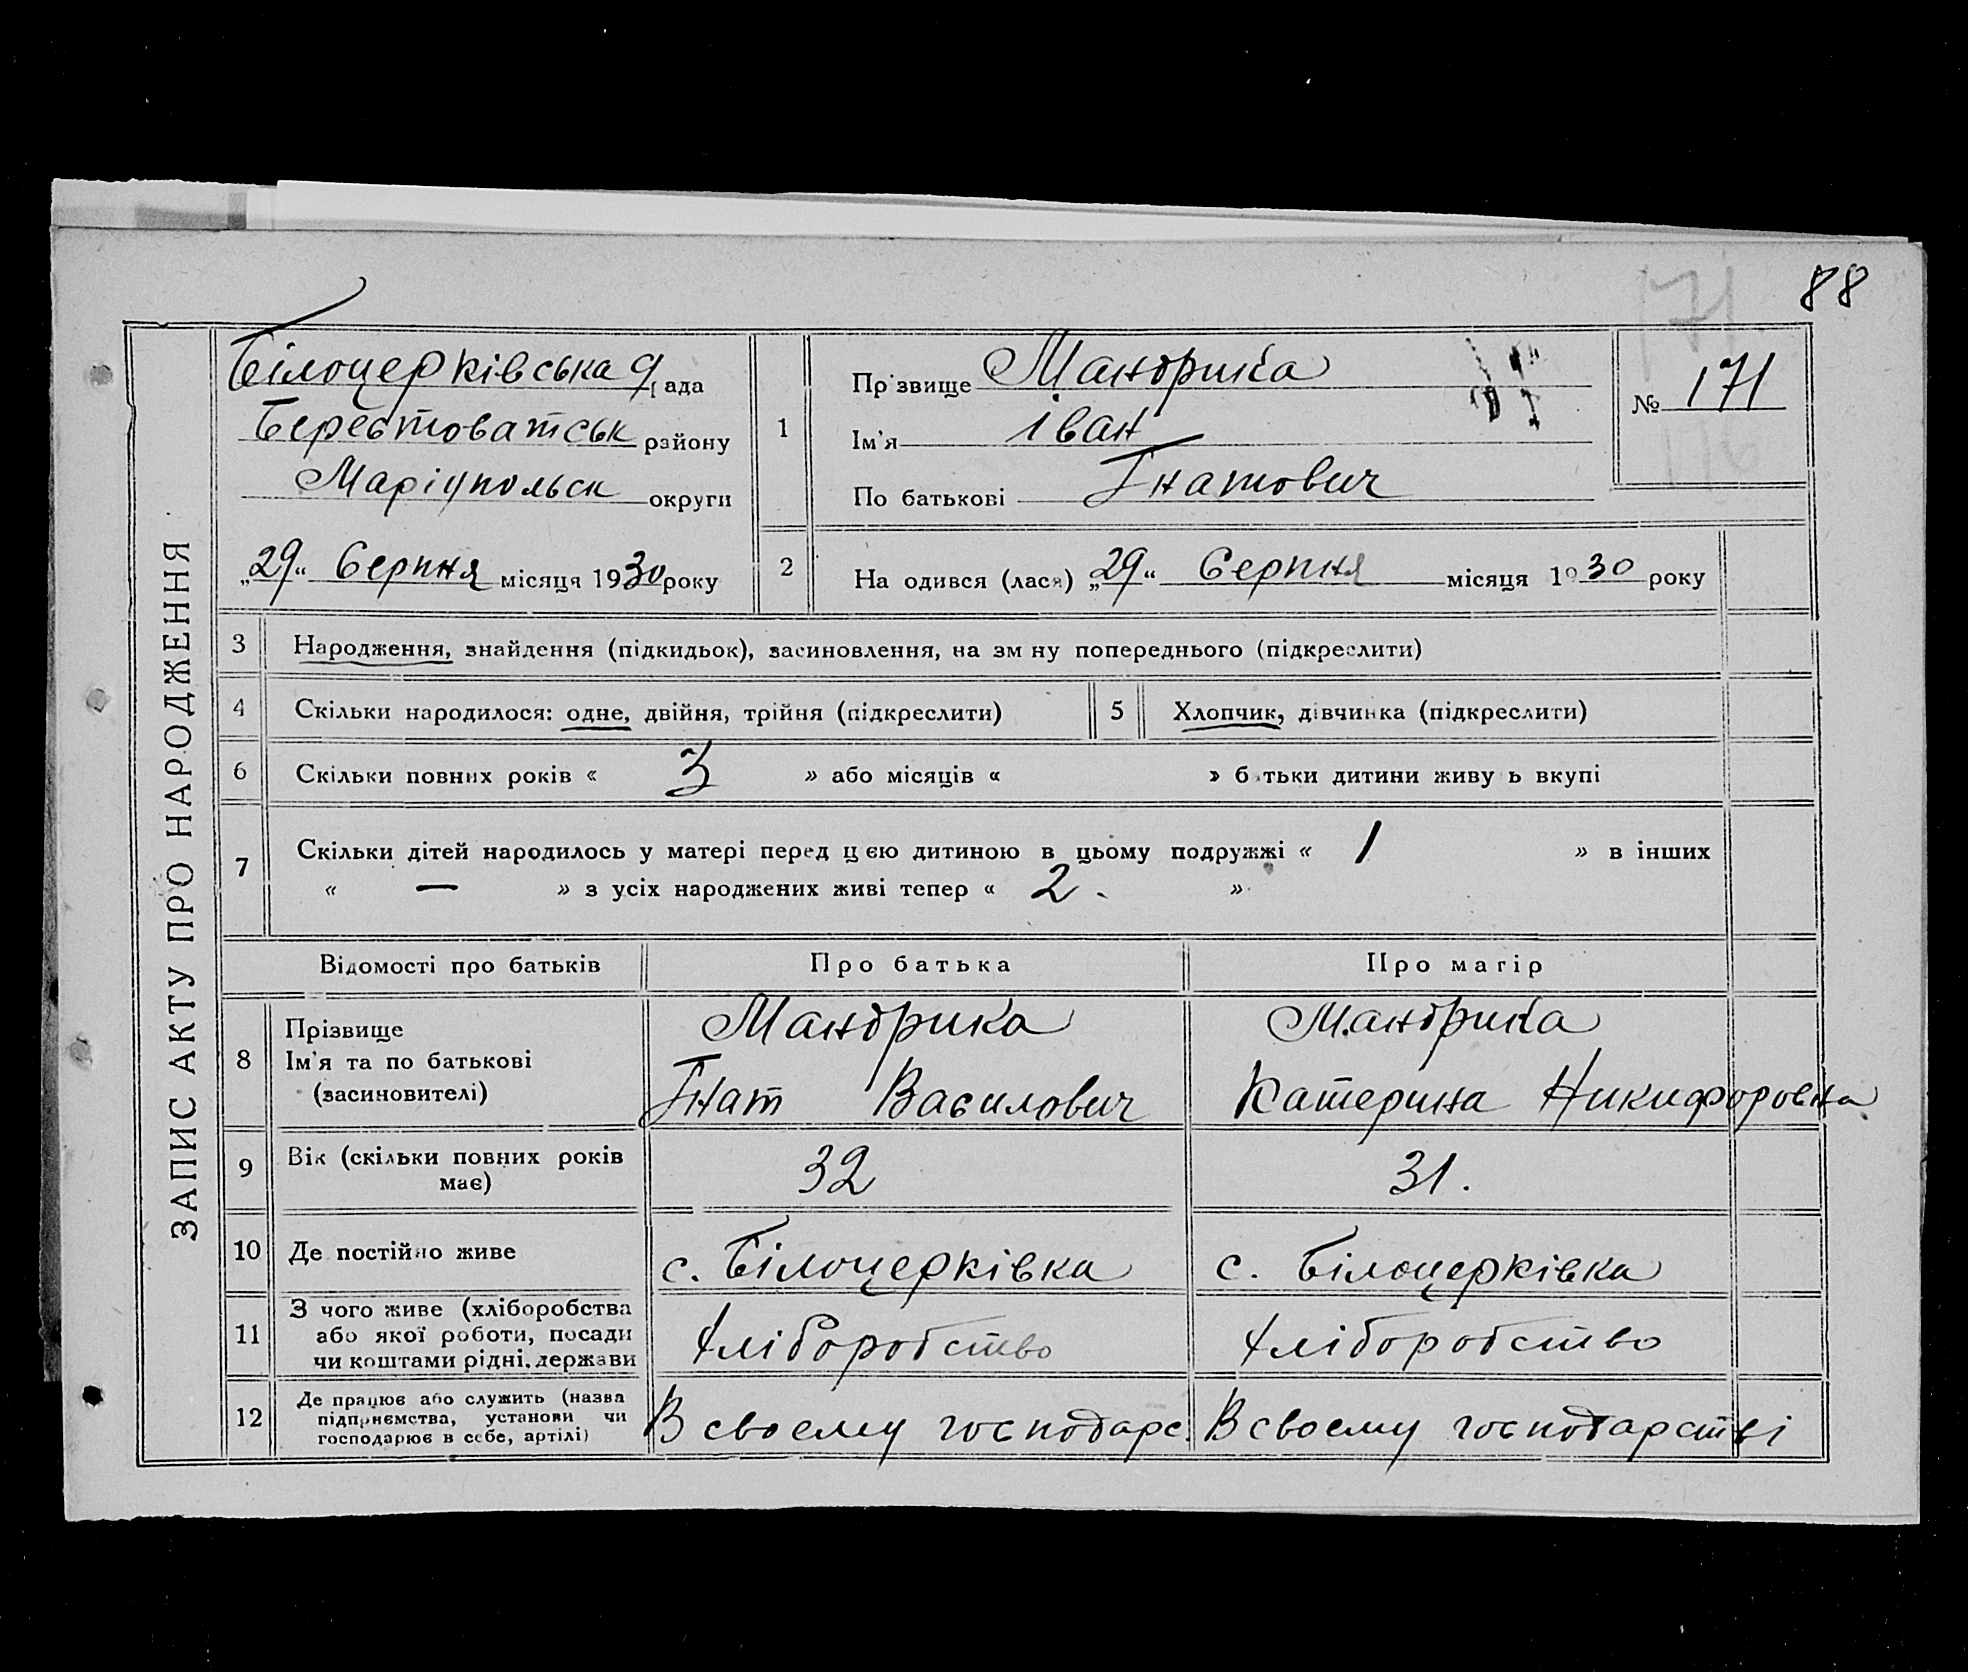 88
171
ЗАПИС АКТУ ПРО НАРОДЖЕННЯ
Білоцерківська Рада
Берестоватськ району
Маріупольск округи
„29“ Серпня місяця 1930 року
1
Прізвище Мандрика
Ім'я Іван
По батькові Гнатович
№ 171
2
На одився (лася) „29“ Серпня місяця 1930 року
3 Народження, знайдення (підкидьок), засиновлення, на зм ну попереднього (підкреслити)
4 Скільки народилося: одне, двійня, трійня (підкреслити)
5 Хлопчик, дівчинка (підкреслити)
6 Скільки повних років « 3 » або місяців « » б тьки дитини живу ь вкупі
7 Скільки дітей народилось у матері перед цією дитиною в цьому подружжі « 1 » в інших
« — » з усіх народжених живі тепер « 2. »
Відомості про батьків Про батька Про матір
8 Прізвище
Ім'я та по батькові
(засиновителі)
Мандрика
Гнат Василович
Мандрика
Катерина Никифоровна
9 Вік (скільки повних років
має)
32
31.
10 Де постійно живе
с. Білоцерківка
с. Білоцерківка
11 З чого живе (хліборобства
або якої роботи, посади
чи коштами рідні, держави
Хліборобство
Хліборобство
12 Де працює або служить (назва
підприємства, установи чи
господарює в себе, артілі)
В своему господарс.
В своему господарстві